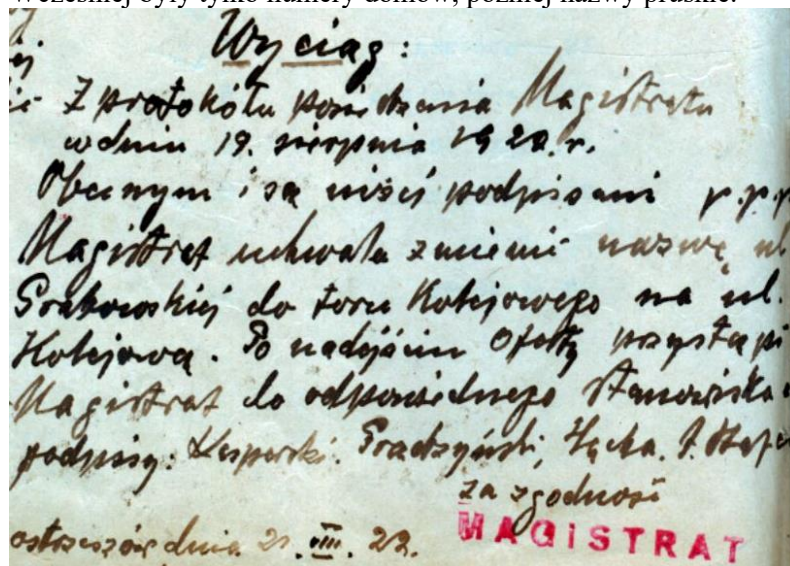 Wcześniej były tylko numery domów, później nazwy pruskie.
Wyciąg:
Z protokółu posiedzenia Magistratu
w dniu 19. sierpnia 1920. r.
Obecnymi są niżej podpisani p.p.
Magistrat uchwala zmienić nazwę ul
Grabowskiej do toru Kolejowego na ul.
Kolejową. Po nadejściu Oferty przystąpi
Magistrat do odpowiedniego stanowiska
podpisy: Kasperski. Prądzyński,
za zgodność
MAGISTRAT
ostrzeszów dnia 21. VIII. 22.